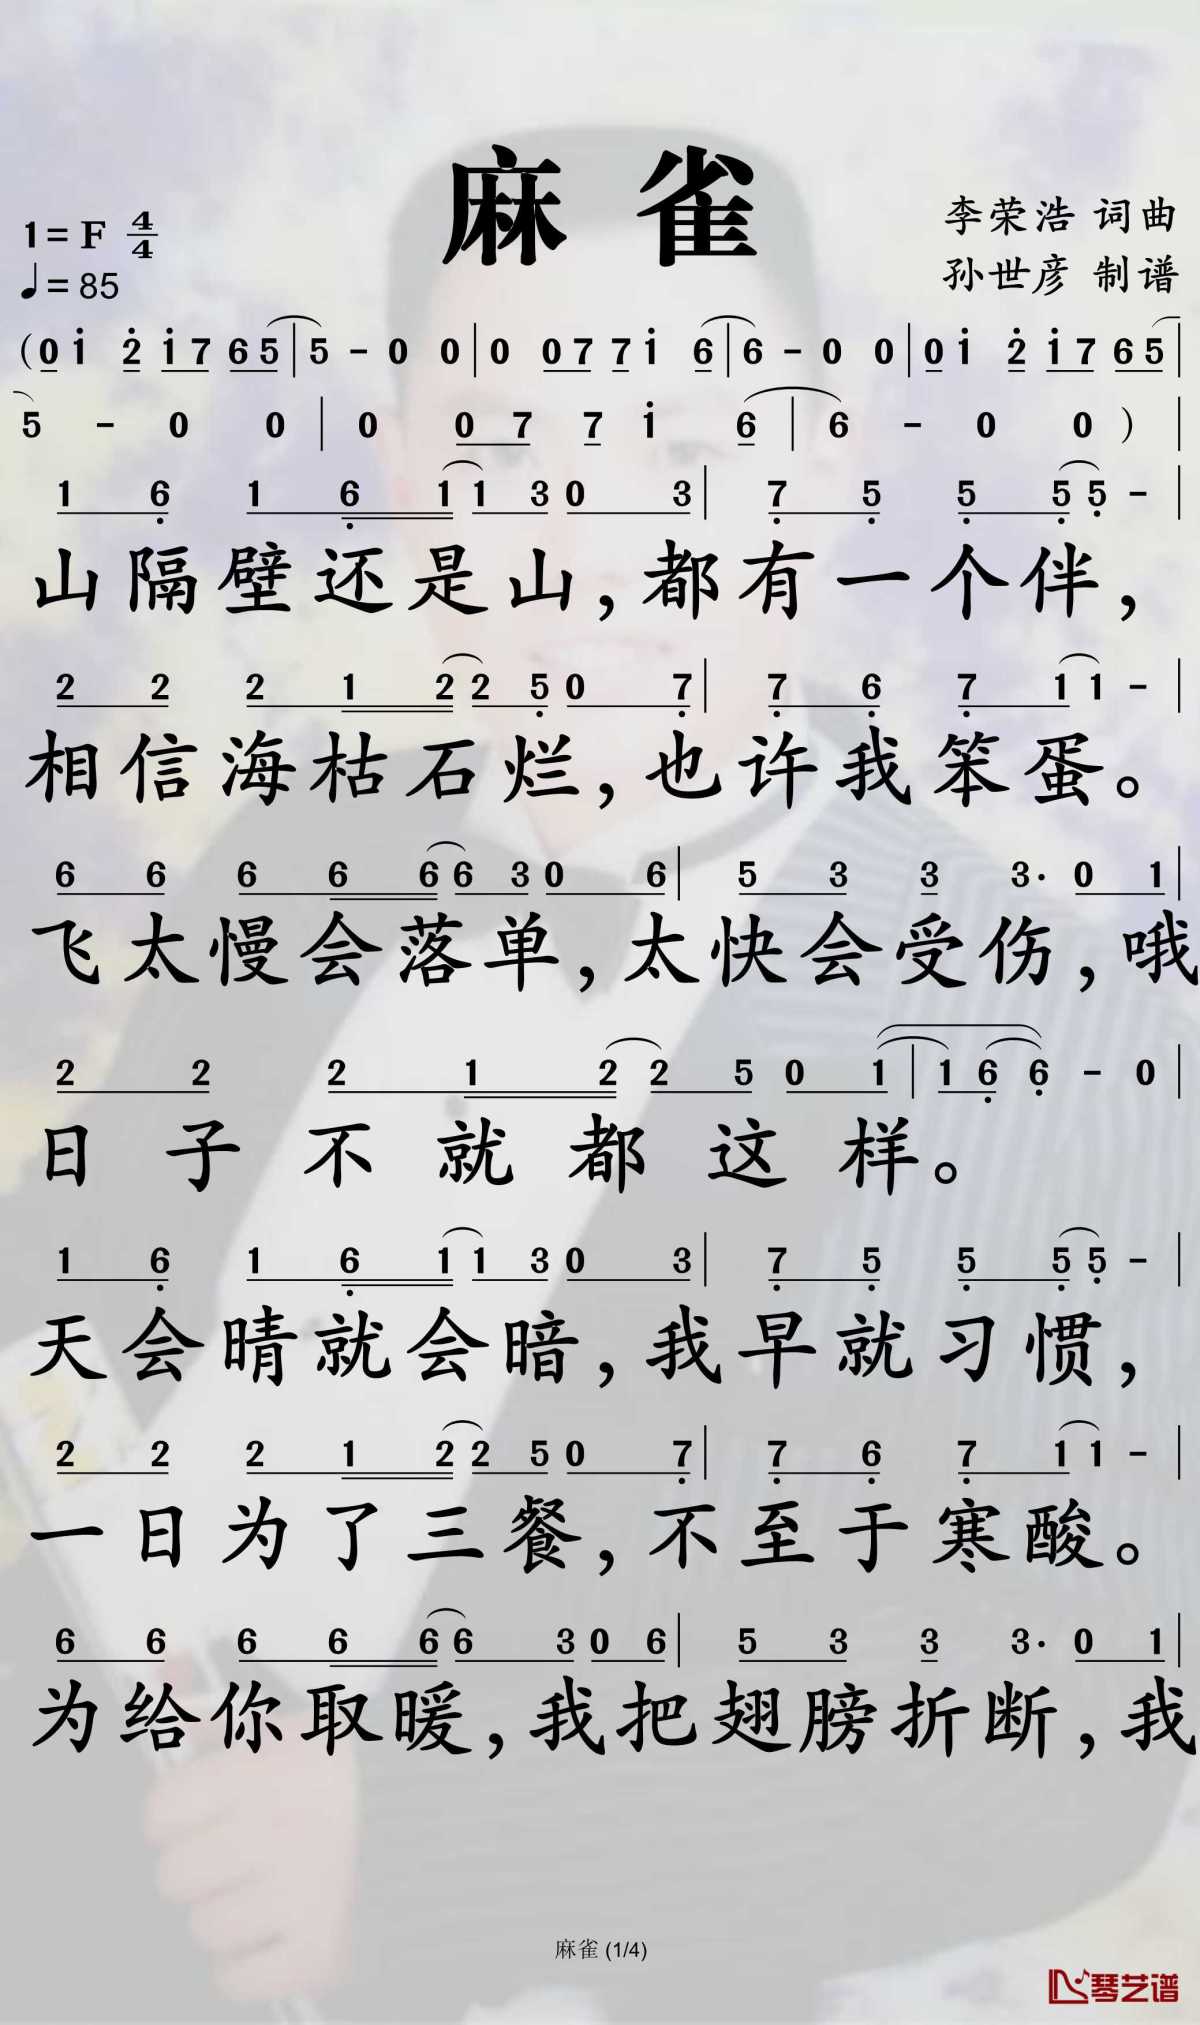 麻雀
1=F 4/4
♩=85
李荣浩 词曲
孙世彦 制谱
(0 i 2̇ i 7 6 5 | 5 - 0 0 | 0 0 7 7 i 6 | 6 - 0 0 | 0 i 2̇ i 7 6 5 |
5 - 0 0 | 0 0 7 7 i 6 | 6 - 0 0 ) |
1 6̣ 1 6̣ 1 1 3 0 3 | 7̣ 5̣ 5̣ 5̣ 5̣ - |
山隔壁还是山,都有一个伴,
2 2 2 1 2 2 5̣ 0 7̣ | 7̣ 6̣ 7̣ 1 1 - |
相信海枯石烂,也许我笨蛋。
6 6 6 6 6 6 3 0 6 | 5 3 3 3· 0 1 |
飞太慢会落单,太快会受伤,哦
2 2 2 1 2 2 5 0 1 | 1 6̣ 6̣ - 0 |
日子不就都这样。
1 6̣ 1 6̣ 1 1 3 0 3 | 7̣ 5̣ 5̣ 5̣ 5̣ - |
天会晴就会暗,我早就习惯,
2 2 2 1 2 2 5 0 7̣ | 7̣ 6̣ 7̣ 1 1 - |
一日为了三餐,不至于寒酸。
6 6 6 6 6 6 3 0 6 | 5 3 3 3· 0 1 |
为给你取暖,我把翅膀折断,我
麻雀 (1/4)
琴艺谱